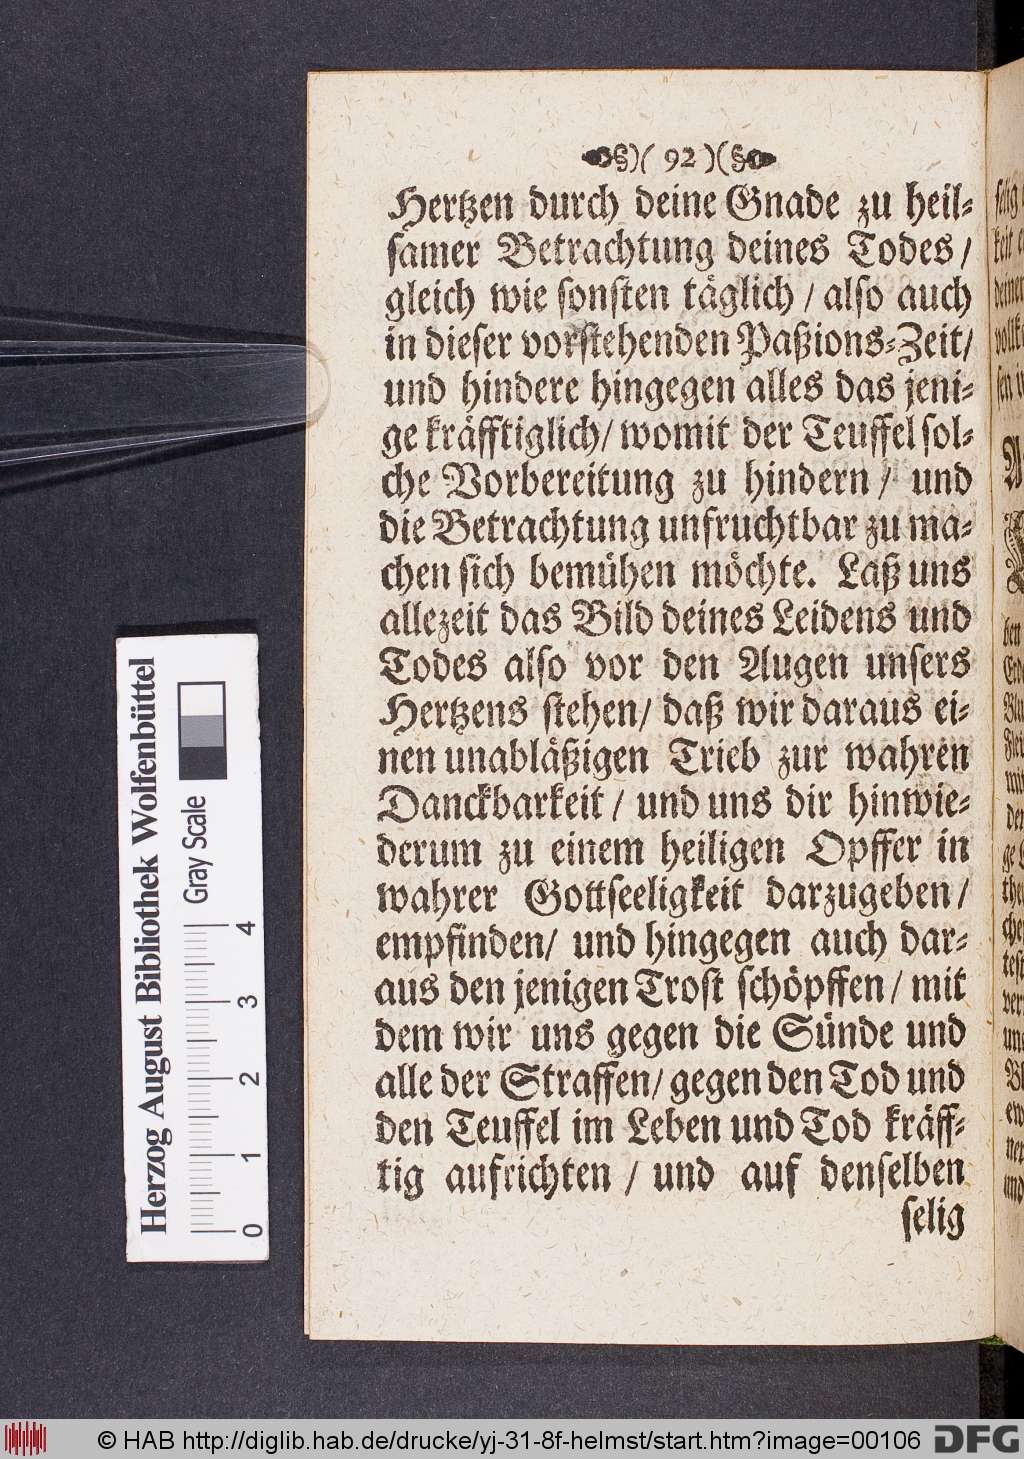 )( 92 )(
Hertzen durch deine Gnade zu heil-
samer Betrachtung deines Todes/
gleich wie sonsten täglich/ also auch
in dieser vorstehenden Paßions-Zeit/
und hindere hingegen alles das jeni-
ge kräfftiglich/ womit der Teuffel sol-
che Vorbereitung zu hindern/ und
die Betrachtung unfruchtbar zu ma-
chen sich bemühen möchte. Laß uns
allezeit das Bild deines Leidens und
Todes also vor den Augen unsers
Hertzens stehen/ daß wir daraus ei-
nen unabläßigen Trieb zur wahren
Danckbarkeit/ und uns dir hinwie-
derum zu einem heiligen Opffer in
wahrer Gottseeligkeit darzugeben/
empfinden/ und hingegen auch dar-
aus den jenigen Trost schöpffen/ mit
dem wir uns gegen die Sünde und
alle der Straffen/ gegen den Tod und
den Teuffel im Leben und Tod kräff-
tig aufrichten/ und auf denselben
selig
Herzog August Bibliothek Wolfenbüttel
Gray Scale
0 1 2 3 4
© HAB http://diglib.hab.de/drucke/yj-31-8f-helmst/start.htm?image=00106
DFG